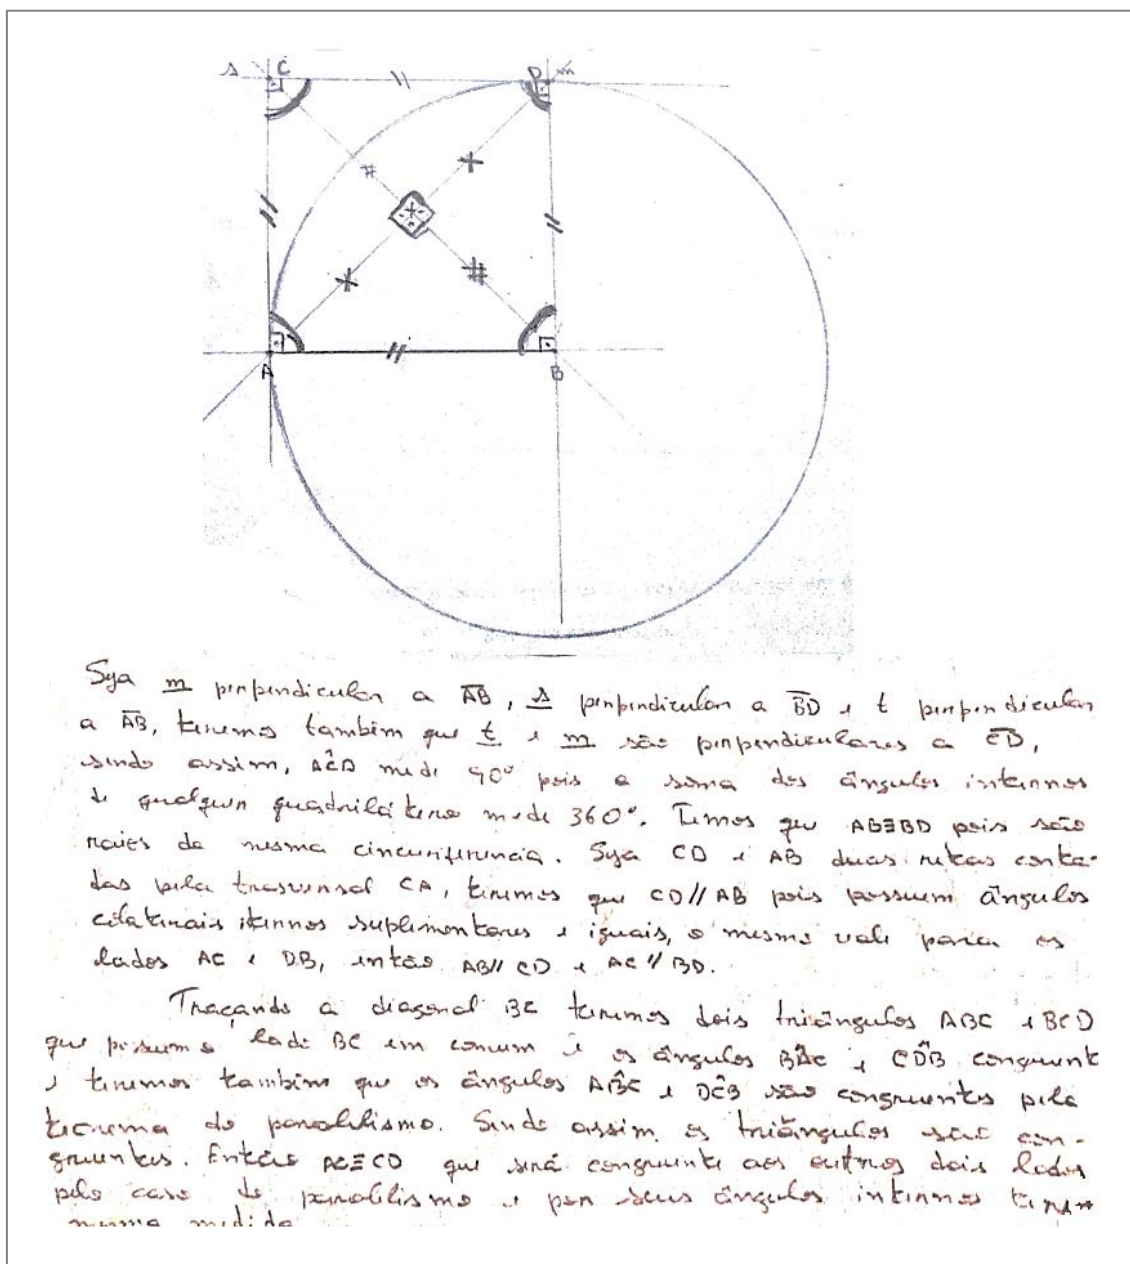 s C D m
A B
Seja m perpendicular a AB, s perpendicular a BD e t perpendicular
a AB, teremos também que t e m são perpendiculares a CD,
sendo assim, AĈD mede 90° pois a soma dos ângulos internos
de qualquer quadrilátero mede 360°. Temos que AB≡BD pois são
raios da mesma circunferencia. Seja CD e AB duas retas corta-
das pela trasversal CA, teremos que CD//AB pois possuem ângulos
colaterais iternos suplementares e iguais, o mesmo vale para os
lados AC e DB, então AB// CD e AC// BD.
Traçando a diagonal BC teremos dois triângulos ABC e BCD
que possuem o lado BC em comum e os ângulos BÂC e CD̂B congruente
e teremos também que os ângulos AB̂C e DĈB são congruentes pelo
teorema do paralelismo. Sendo assim, os triângulos são con-
gruentes. Então AC≡CD que será congruente aos outros dois lados
pelo caso de paralelismo e por seus ângulos internos terem
mesma medida